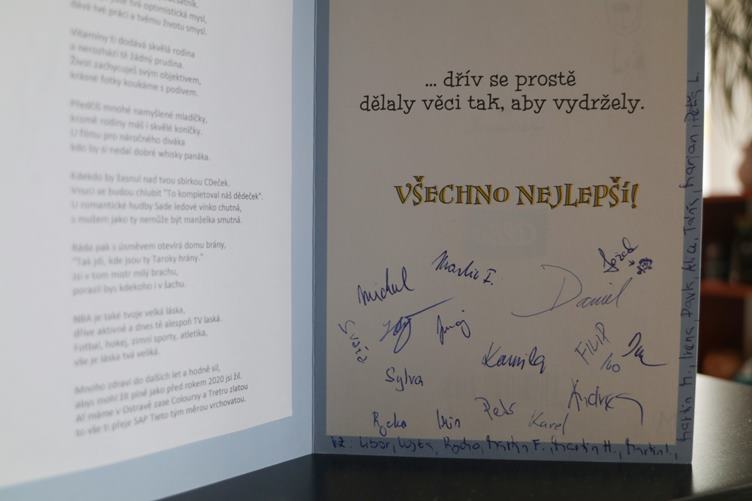 dává tvé práci a tvému životu smysl.
Vitamíny ti dodává skvělá rodina
a nerozhází tě žádný prudina.
Život zachycuješ svým objektivem,
krásné fotky koukáme s podivem.
Předčíš mnohé namyšlené mladíčky,
kromě rodiny máš i skvělé koníčky.
U filmu pro náročného diváka
kdo by si nedal dobré whisky panáka.
Kdekdo by žasnul nad tvou sbírkou CDeček.
Vnuci se budou chlubit "To kompletoval náš dědeček".
U romantické hudby Sade ledové vínko chutná,
s mužem jako ty nemůže být manželka smutná.
Ráda pak s úsměvem otevírá domu brány,
"Tak jdi, kde jsou ty Taroky hrány."
Jsi v tom mistr milý brachu,
porazil bys kdekoho i v šachu.
NBA je také tvoje velká láska,
dříve aktivně a dnes tě alespoň TV laská.
Fotbal, hokej, zimní sporty, atletika,
vše je láska tvá veliká.
Mnoho zdraví do dalších let a hodně sil,
abys mohl žít plně jako před rokem 2020 jsi žil.
Ať máme v Ostravě zase Coloursy a Tretru zlatou
to vše ti přeje SAP Tieto tým měrou vrchovatou.
... dřív se prostě
dělaly věci tak, aby vydržely.
VŠECHNO NEJLEPŠÍ!
Michal
Martin F.
Daniel
Juraj
Kamila
FILIP
Sylva
Petr
Andrea
Radko
Irin
Karel
Libor, Lujza, Radko, Martin F., Martin H., Martin
Martin M., Irena, David, Alice, Táňa, Marian, Petra L.